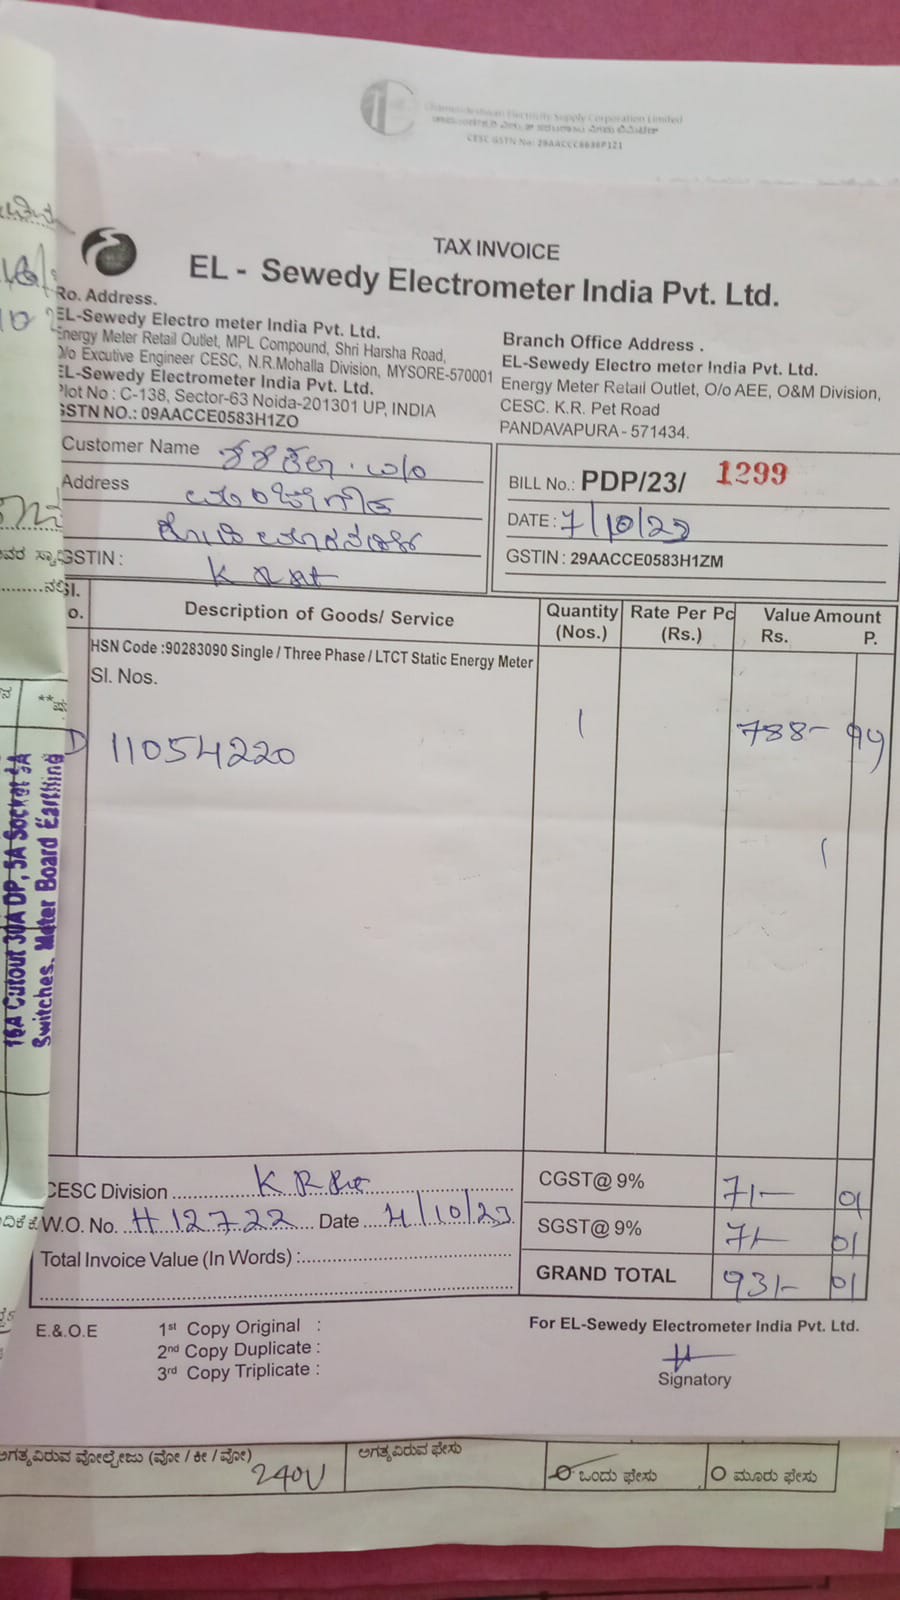 Chamundeshwari Electricity Supply Corporation Limited
CESC GSTN No: 29AACCC6636P1Z1
TAX INVOICE
EL - Sewedy Electrometer India Pvt. Ltd.
Ro. Address.
EL-Sewedy Electro meter India Pvt. Ltd.
Energy Meter Retail Outlet, MPL Compound, Shri Harsha Road,
O/o Excutive Engineer CESC, N.R.Mohalla Division, MYSORE-570001
EL-Sewedy Electrometer India Pvt. Ltd.
Plot No : C-138, Sector-63 Noida-201301 UP, INDIA
GSTN NO.: 09AACCE0583H1ZO
Branch Office Address .
EL-Sewedy Electro meter India Pvt. Ltd.
Energy Meter Retail Outlet, O/o AEE, O&M Division,
CESC. K.R. Pet Road
PANDAVAPURA - 571434.
Customer Name ಶಶಿಕಲಾ
Address
GSTIN :
BILL No.: PDP/23/ 1299
DATE : 7/10/23
GSTIN : 29AACCE0583H1ZM
Sl. No. Description of Goods/ Service Quantity (Nos.) Rate Per Pc (Rs.) Value Amount Rs. P.
HSN Code :90283090 Single / Three Phase / LTCT Static Energy Meter
Sl. Nos.
1) 11054220 1 788- 99
16A Cutout 30A DP, 5A Socket 5A
Switches, Meter Board Earthing
CESC Division
W.O. No. H 12722 Date 4/10/23
Total Invoice Value (In Words) :
CGST@ 9% 71- 01
SGST@ 9% 71- 01
GRAND TOTAL 931- 01
E.&.O.E
1st Copy Original :
2nd Copy Duplicate :
3rd Copy Triplicate :
For EL-Sewedy Electrometer India Pvt. Ltd.
Signatory
ಅಗತ್ಯವಿರುವ ವೋಲ್ಟೇಜು (ವೋ / ಕೀ / ವೋ) 240V
ಅಗತ್ಯವಿರುವ ಫೇಸು
ಒಂದು ಫೇಸು
ಮೂರು ಫೇಸು